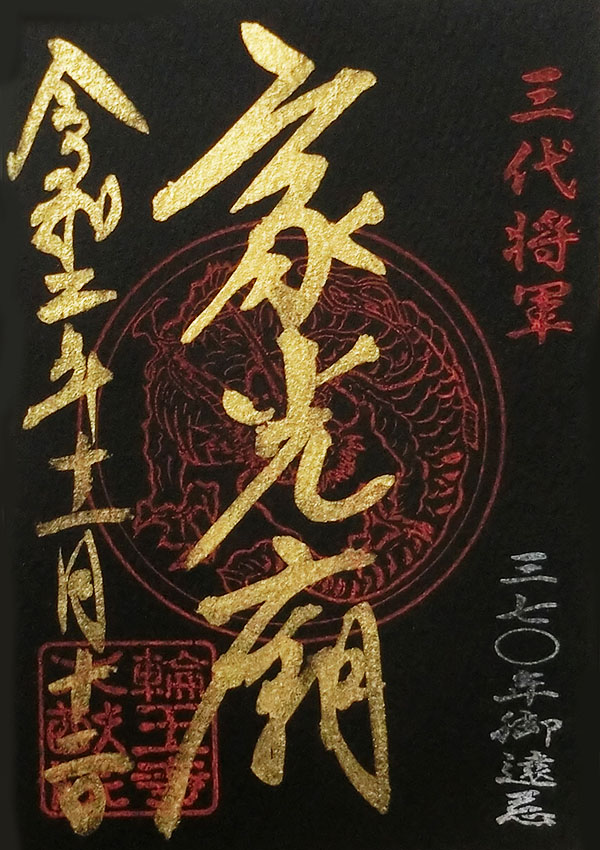 三代将軍
三七〇年御遠忌
家光廟
令和三年十一月十二日
輪王寺
大猷院